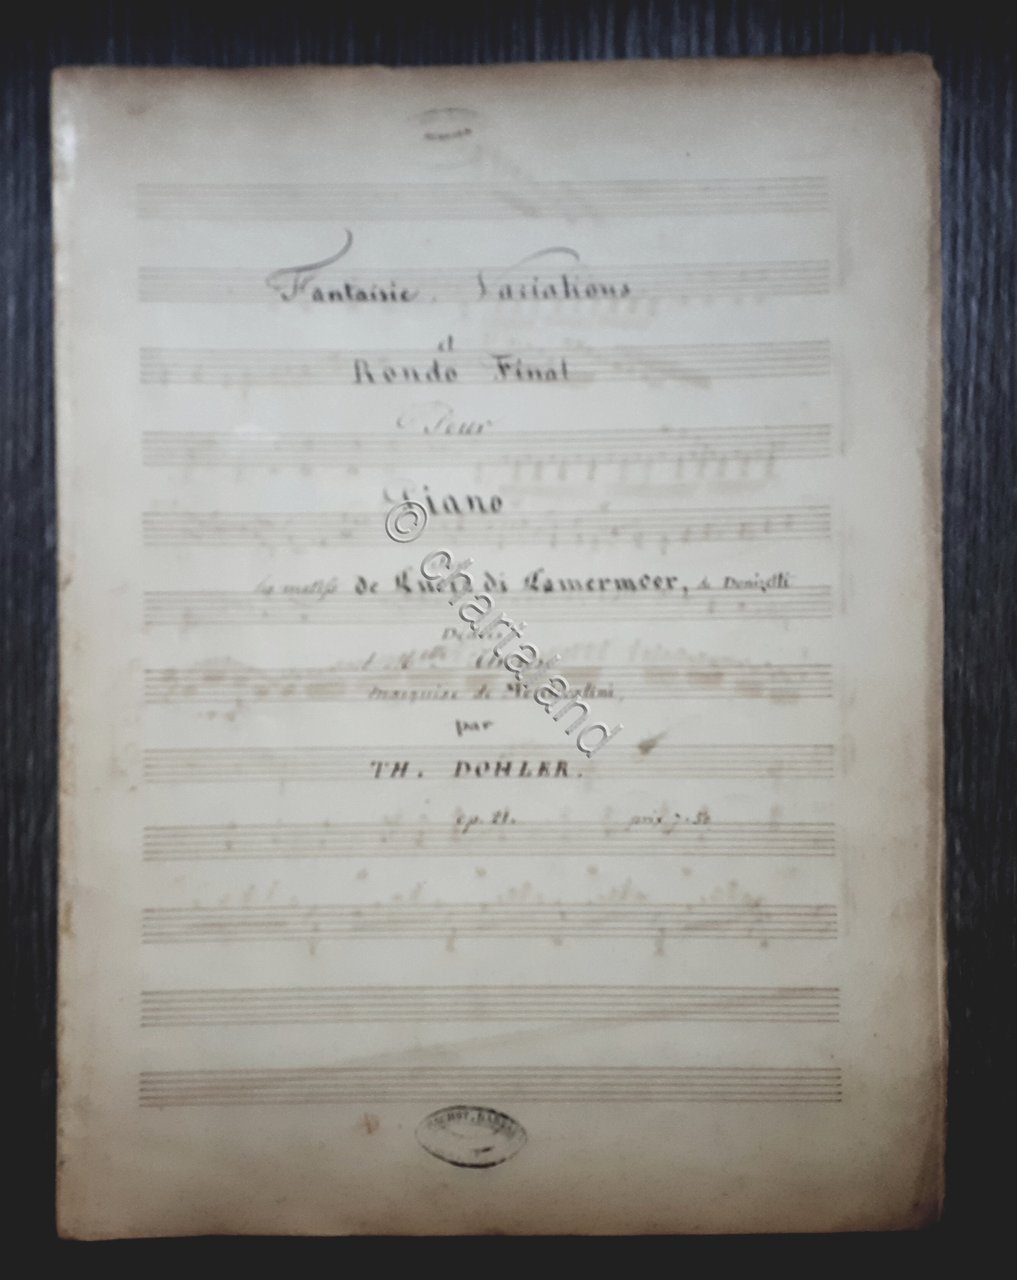 Fantaisie, Variations
et
Rondo Final
Pour
Piano
de Lucia di Lamermoor, de Donizetti
marquise de
par
TH. DOHLER.
op. 21. prix 7.50
© chartaland